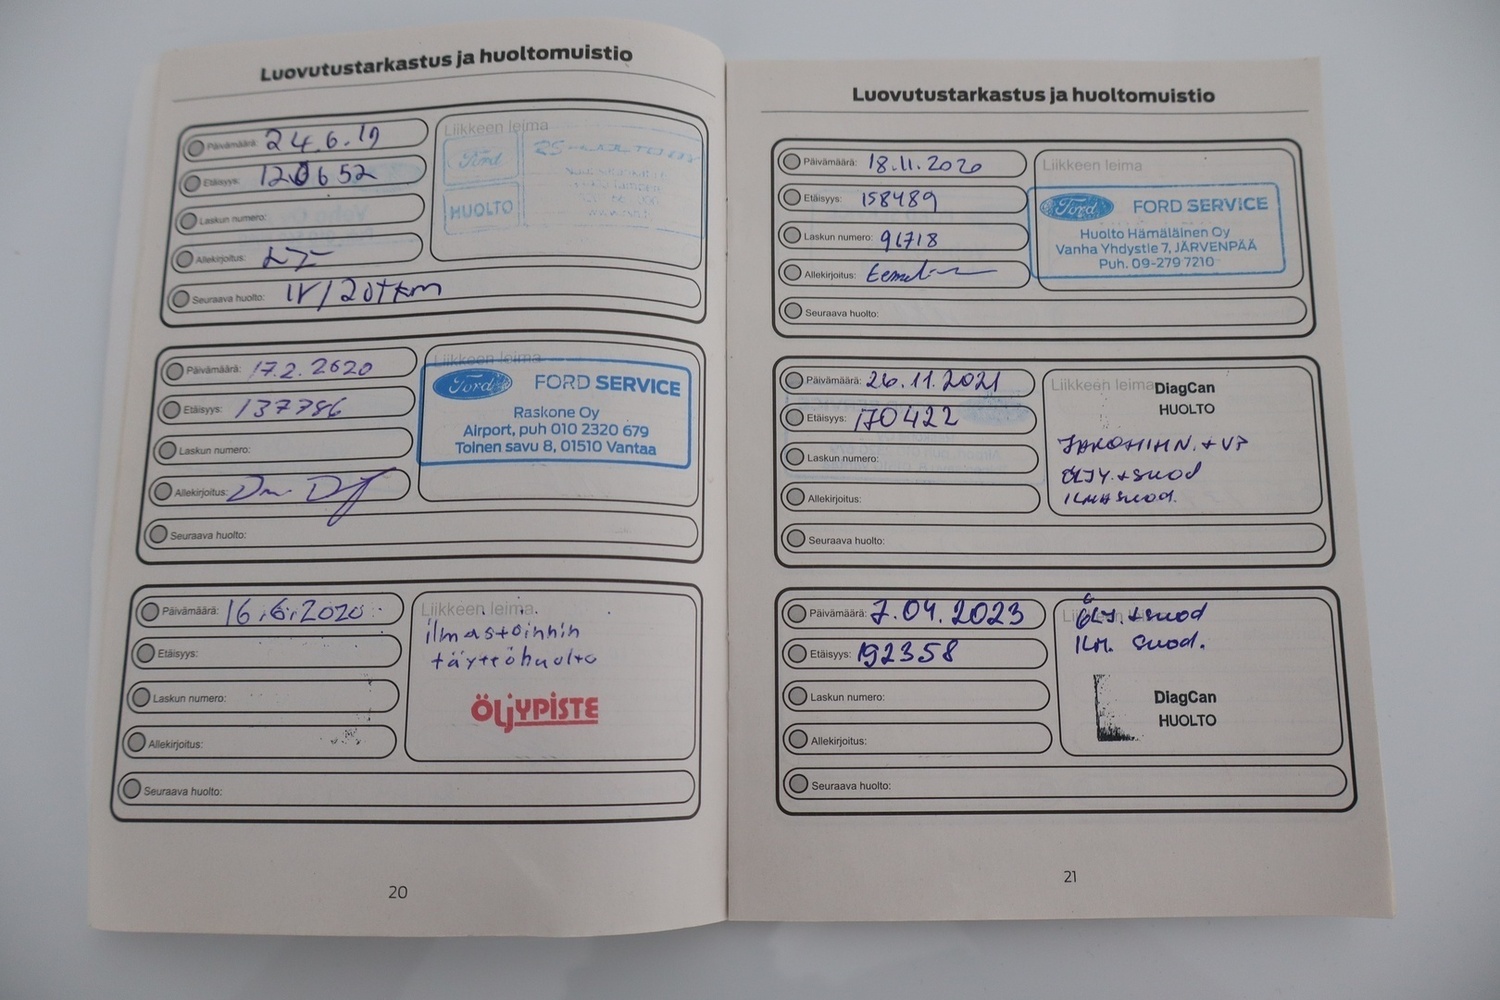 Luovutustarkastus ja huoltomuistio
Päivämäärä: 24.6.19
Etäisyys: 120652
Laskun numero:
Allekirjoitus:
Seuraava huolto: 1V/20tkm
Liikkeen leima
Ford
HUOLTO
Päivämäärä: 17.2.2020
Etäisyys: 137786
Laskun numero:
Allekirjoitus:
Seuraava huolto:
Liikkeen leima
Ford FORD SERVICE
Raskone Oy
Airport, puh 010 2320 679
Toinen savu 8, 01510 Vantaa
Päivämäärä: 16.6.2020
Etäisyys:
Laskun numero:
Allekirjoitus:
Seuraava huolto:
Liikkeen leima
ilmastoinnin
täyttöhuolto
ÖLJYPISTE
20
Luovutustarkastus ja huoltomuistio
Päivämäärä: 18.11.2020
Etäisyys: 158489
Laskun numero: 91718
Allekirjoitus:
Seuraava huolto:
Liikkeen leima
Ford FORD SERVICE
Huolto Hämäläinen Oy
Vanha Yhdystie 7, JÄRVENPÄÄ
Puh. 09-279 7210
Päivämäärä: 26.11.2021
Etäisyys: 170422
Laskun numero:
Allekirjoitus:
Seuraava huolto:
Liikkeen leima
DiagCan
HUOLTO
JAKOHIHN. + VP
ÖLJY. + SUOD
ILMASUOD.
Päivämäärä: 7.04.2023
Etäisyys: 192358
Laskun numero:
Allekirjoitus:
Seuraava huolto:
Liikkeen leima
ÖLJ. + SUOD
ILM. SUOD.
DiagCan
HUOLTO
21